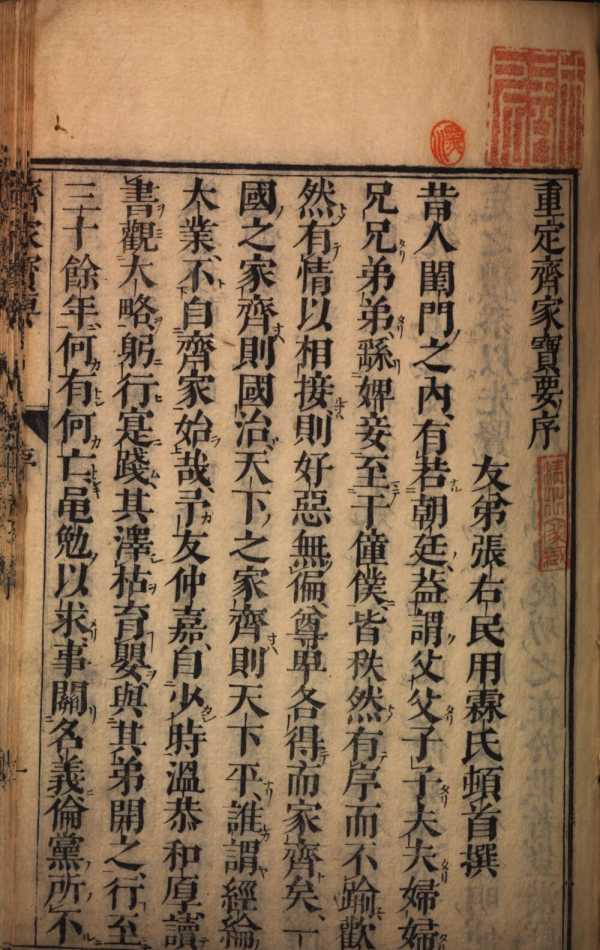 重定齊家寶要序
友弟張右民用霖氏頓首撰
昔人閨門之內有若朝廷葢謂父父子子夫夫婦婦
兄兄弟弟繇婢妾至于僮僕皆秩然有序而不踰歡
然有情以相接則好惡無偏尊卑各得而家齊矣一
國之家齊則國治天下之家齊則天下平誰謂經綸
大業不自齊家始哉予友仲嘉自少時溫恭和厚讀
書觀大略躬行寔踐其澤枯育嬰與其弟開之行至
三十餘年何有何亡黽勉以求事關名義倫黨所不
齊家寶要
序